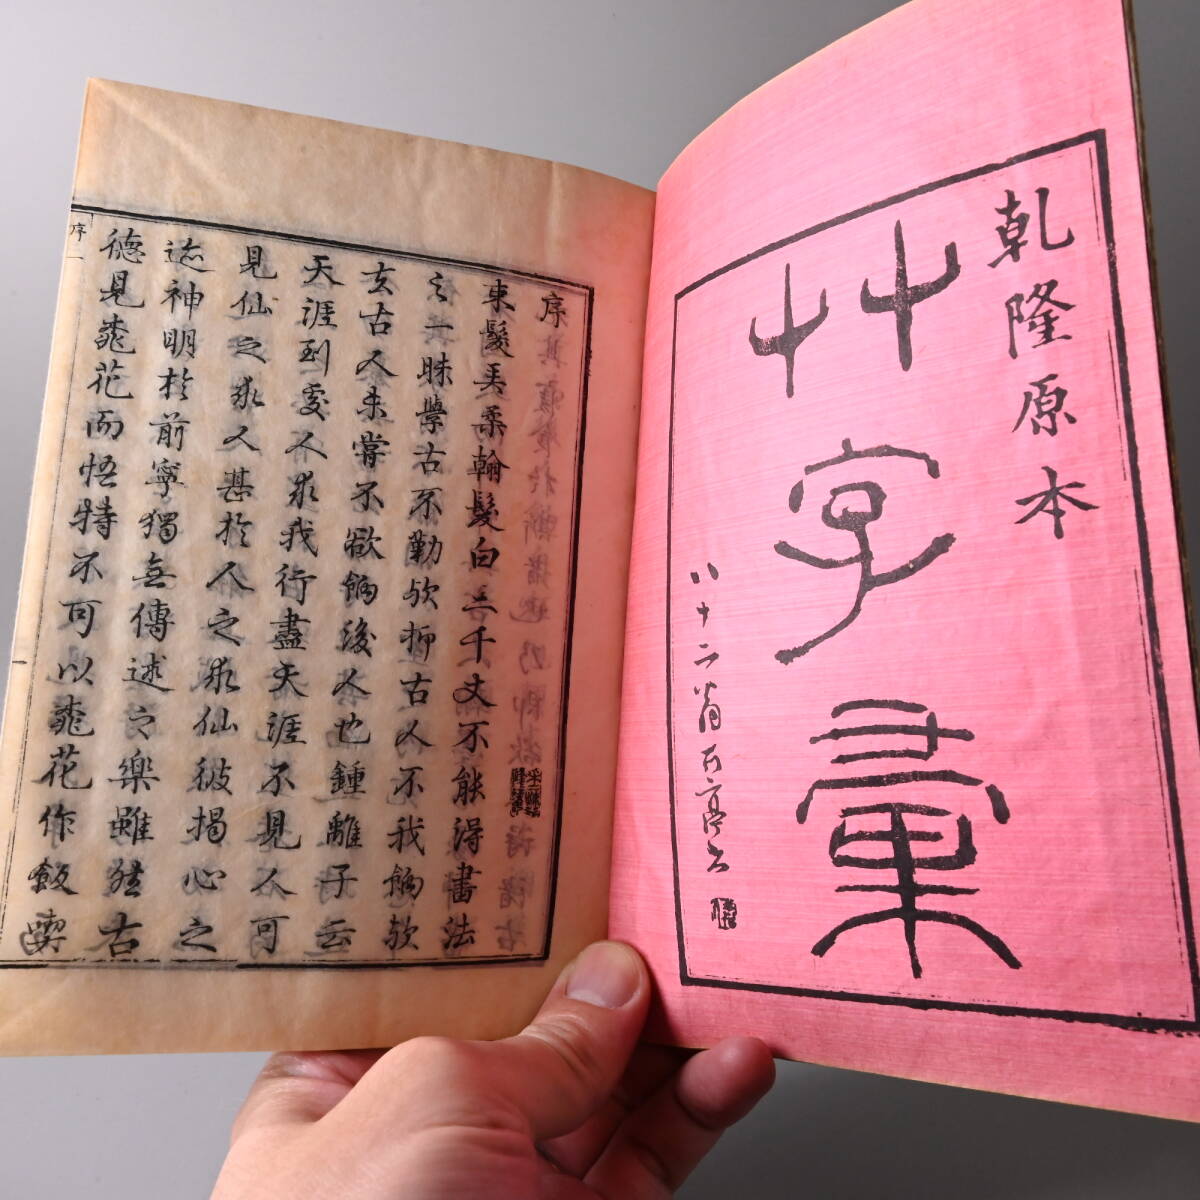 乾隆原本
艸字彙
八十二翁石亭
序
束髮弄柔翰髮白三千丈不能得書法
之一昧學古不勤歟抑古人不我餉歟
古人未嘗不欲餉後人也鍾離子云
天涯到處人求我行盡天涯不見人可
見仙之求人甚於人之求仙彼揭心之
迹神明於前寧獨無傳述之樂雖然古
德見桃花而悟特不可以桃花作飯喫
序 一